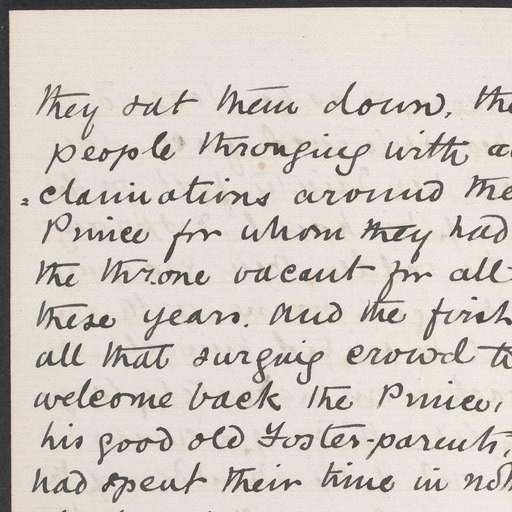 they sat them down, the
people thronging with ac
=clamations around the
Prince for whom they had
the throne vacant for all
these years. And the first
all that surging crowd t
welcome back the Prince,
his good old Foster-parents,
had spent their time in not